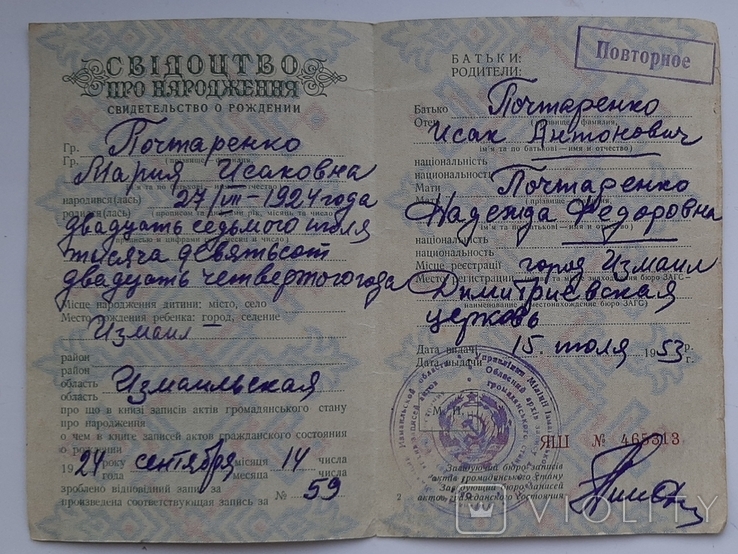 СВІДОЦТВО
ПРО НАРОДЖЕННЯ
СВИДЕТЕЛЬСТВО О РОЖДЕНИИ
Гр. Почтаренко
Гр.
Мария Исаковна
народився(лась) 27/VII-1924 года
родился(лась)
двадцать седьмого июля
тысяча девятьсот
двадцать четвертого года
Місце народження дитини: місто, село
Место рождения ребенка: город, селение
Измаил
район
район
область Измаильская
область
про що в книзі записів актів громадянського стану
про народження
о чем в книге записей актов гражданского состояния
о рождении
19 24 року сентября місяця 14 числа
года месяца числа
зроблено відповідний запис за № 59
произведена соответствующая запись за
БАТЬКИ:
РОДИТЕЛИ:
Повторное
Батько Почтаренко
Отец
Исак Антонович
ім'я та по батькові — имя и отчество
національність
национальность
Мати Почтаренко
Мать
Надежда Федоровна
ім'я та по батькові — имя и отчество
національність
национальность
Місце реєстрації город Измаил
Место регистрации
Димитриевская
церковь
Дата видачі 15. июля 1953 р.
Дата выдачи г.
М. П.
ЯШ № 465313
Завідуючий бюро записів
актів громадянського стану
Заведующий бюро записей
актов гражданского состояния
2
VIOLITY